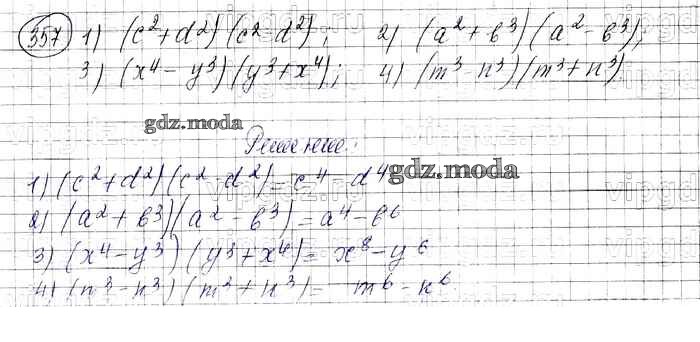 357 1) (c²+d²)(c²-d²); 2) (a²+b³)(a²-b³);
3) (x⁴-y³)(y³+x⁴); 4) (m³-n³)(m³+n³)
gdz.moda
Решение:
1) (c²+d²)(c²-d²)=c⁴-d⁴
gdz.moda
2) (a²+b³)(a²-b³)=a⁴-b⁶
3) (x⁴-y³)(y³+x⁴)=x⁸-y⁶
4) (m³-n³)(m³+n³)= m⁶-n⁶